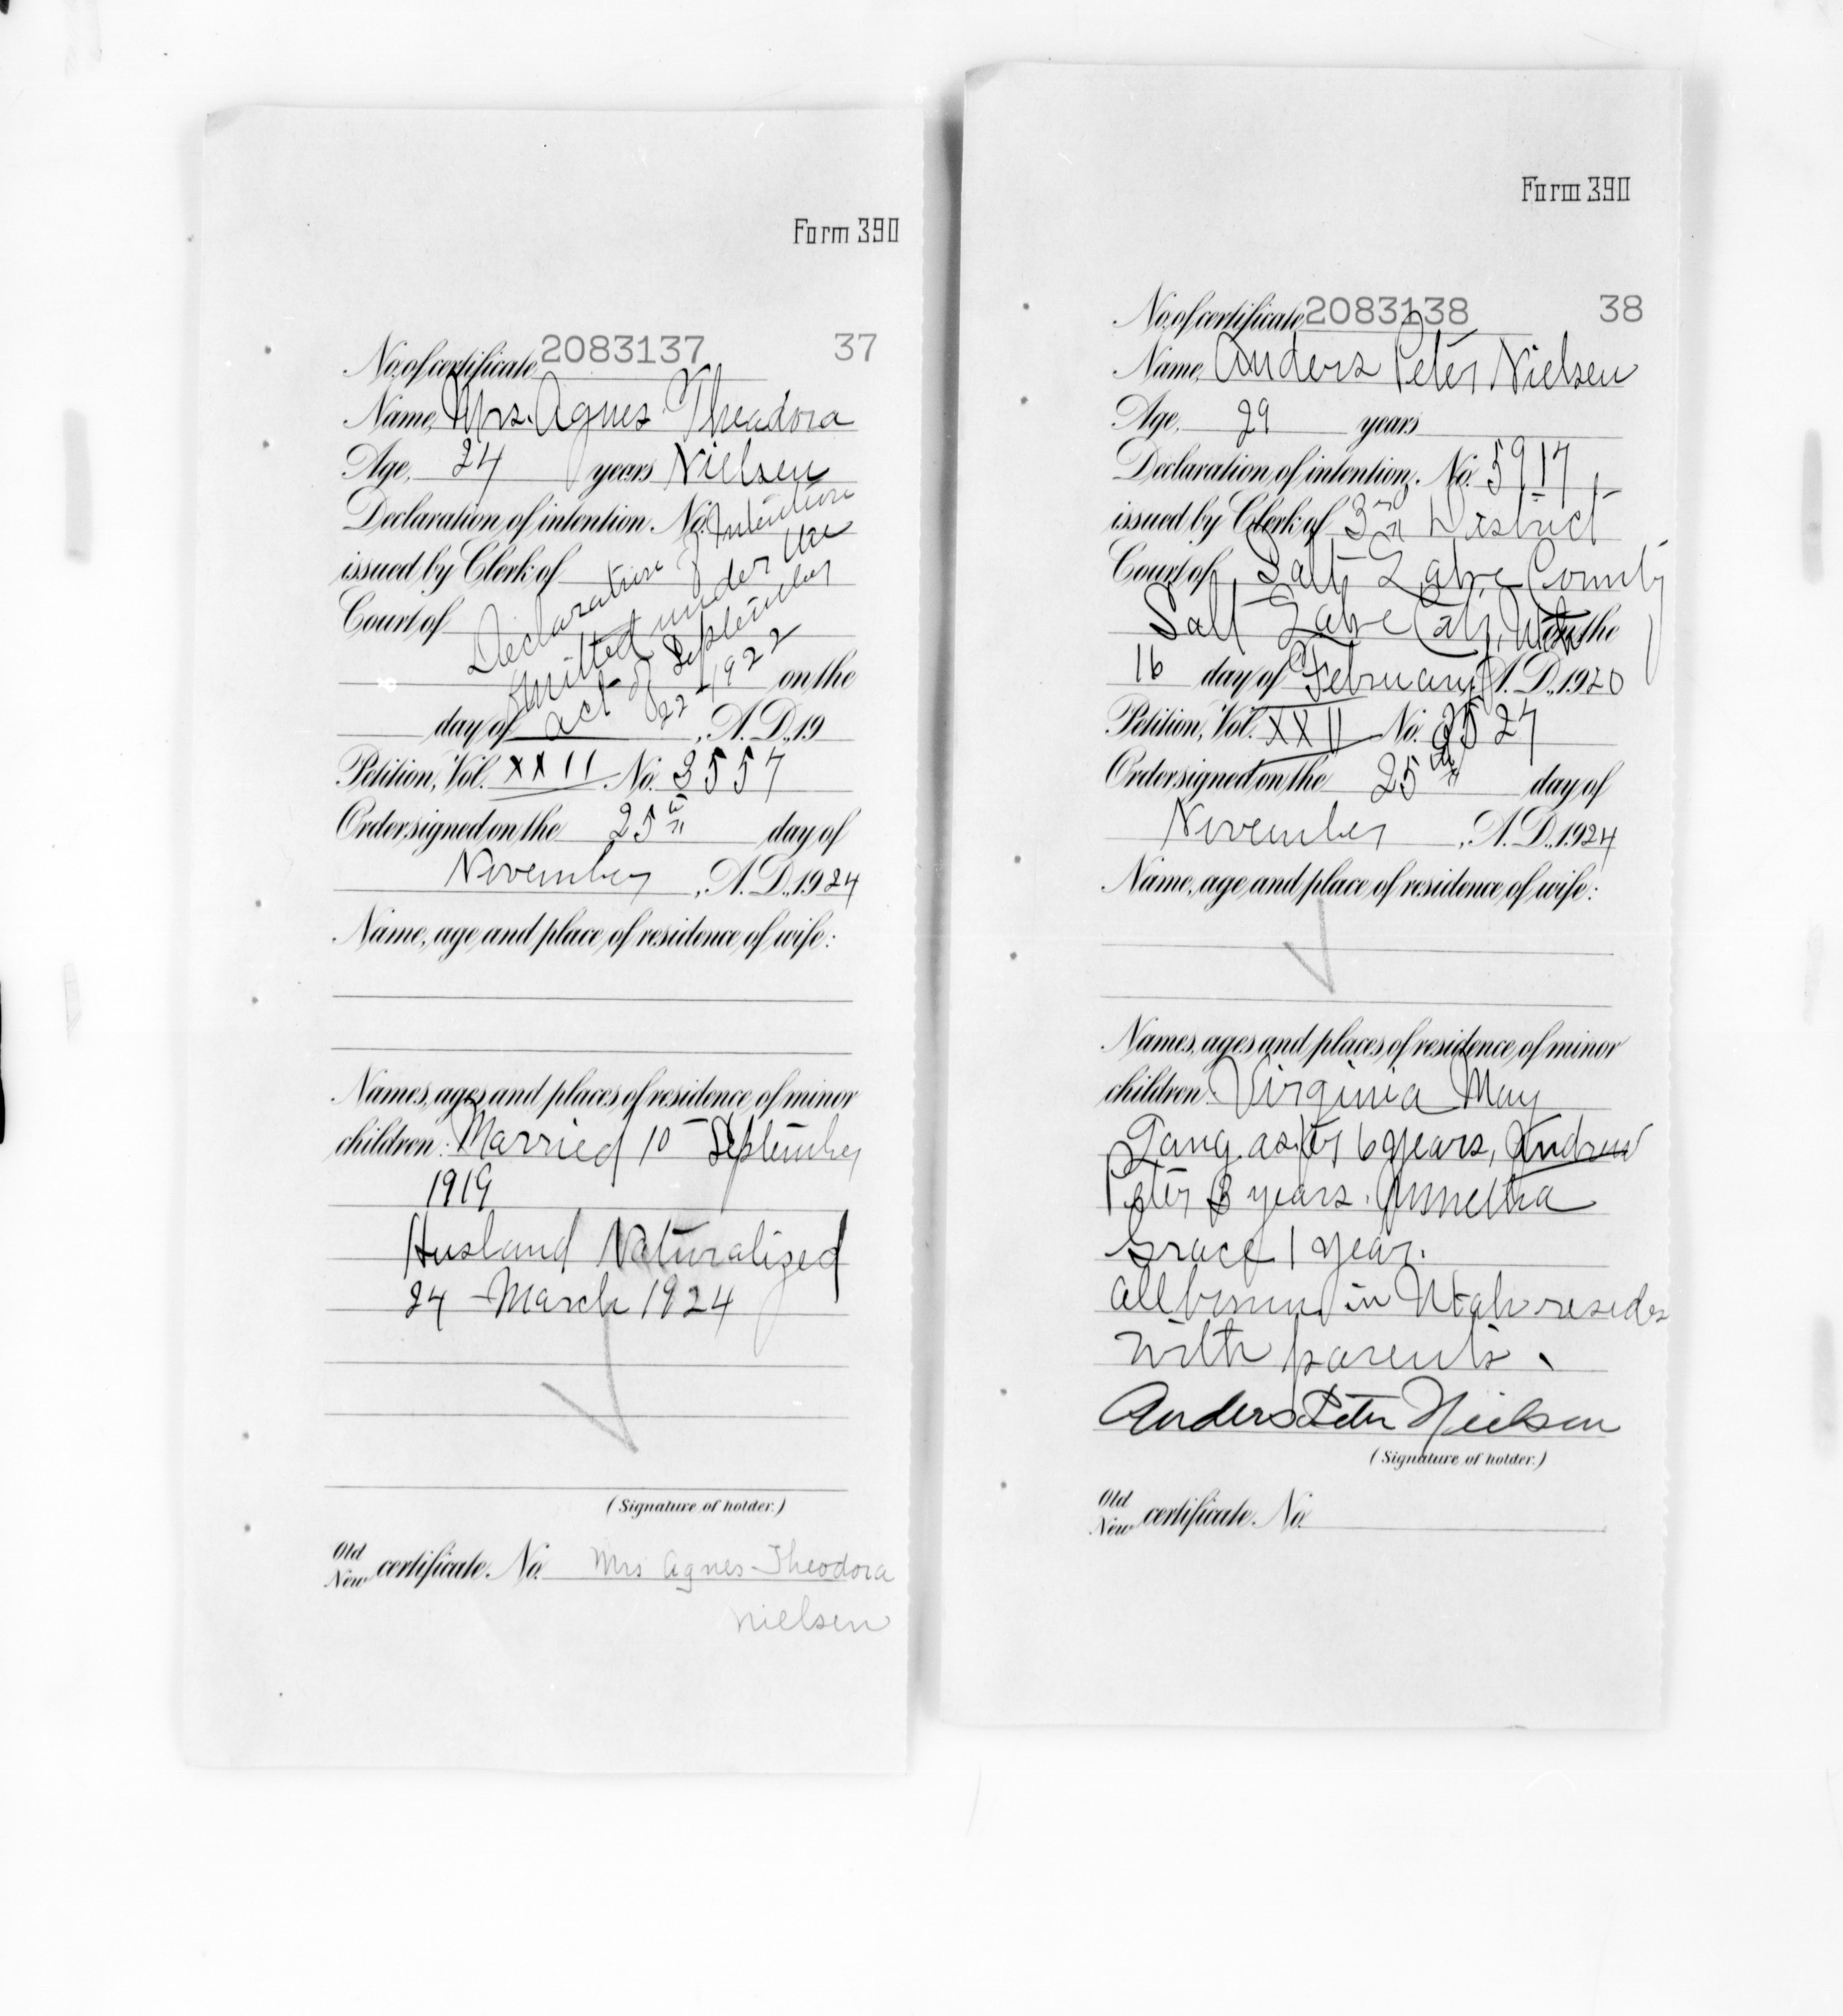 Form 390
No. of certificate 2083137 37
Name, Mrs. Agnes Theadora
Age, 24 years Nielsen
Declaration of intention. No.
issued by Clerk of
Court of
Declaration of Intention
omitted under the
act of September
22-1922
on the
day of , A.D., 19
Petition, Vol. XXII No. 3557
Order signed on the 25th day of
November , A.D., 1924
Name, age and place of residence of wife:
Names, ages and places of residence of minor
children: Married 10 September
1919
Husband Naturalized
24 - March 1924
(Signature of holder.)
Old
New certificate. No. Mrs Agnes Theodora
Nielsen
Form 390
No. of certificate 2083138 38
Name, Anders Peter Nielsen
Age, 29 years
Declaration of intention. No. 5917,
issued by Clerk of 3rd District
Court of Salt Lake County
Salt Lake City, Utah on the
16 day of February A.D., 1920
Petition, Vol. XXII No. 3527
Order signed on the 25th day of
November , A.D., 1924
Name, age and place of residence of wife:
Names, ages and places of residence of minor
children: Virginia May
6 years, Andrew
Peter 3 years.
Grace 1 year.
all born in Utah resides
with parents.
Anders Peter Nielsen
(Signature of holder.)
Old
New certificate. No.